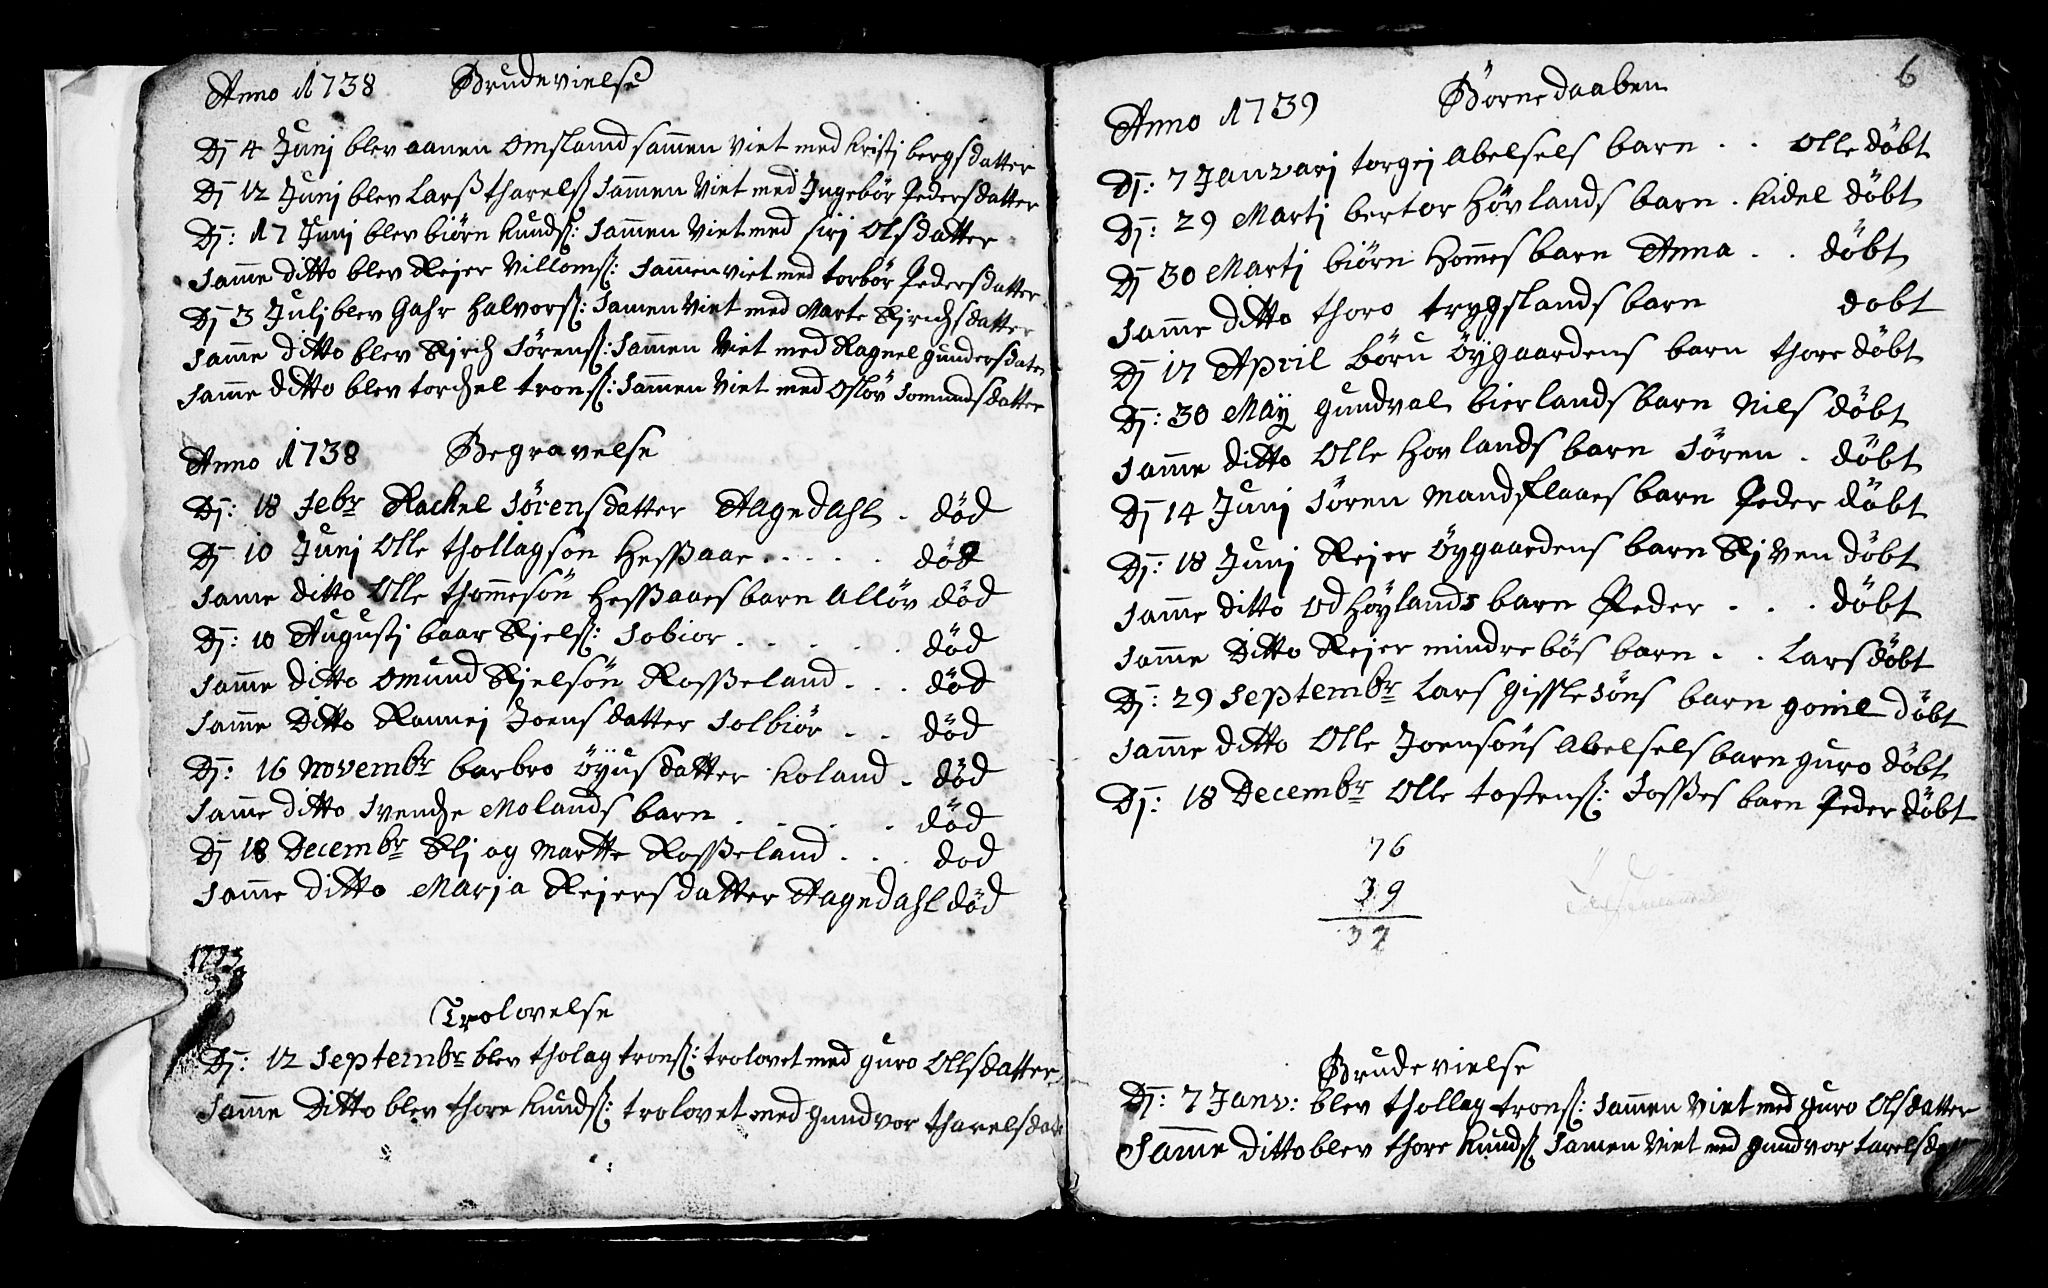 Anno 1738 Brudevielse
Dj 4 Junj blev aanen Omsland sammen viet med kristj bergsdatter
Dj 12 Junj blev Larß tharelsß Sammen Viet med Ingebör Pedersdatter
Dj: 17 Junj blev biörn kundß: Sammen Viet med sirj Olsdatter
Samme ditto blev Rejer Villomß: Sammen viet med torbör Pedersdatter
Dj 3 Julj blev Gahr halvorß: Samen Viet med Marte datter
Samme ditto blev Sörenß: Sammen Viet med Ragnel gundersdater
Samme ditto blev torchel tronß: Sammen Viet med Oslöv Somundsdatter
Anno 1738 Begravelse
Dj: 18 Febr Rachel Sörensdatter Aagedahl . död
Dj 10 Junj Olle thollagsön Heßaae . . . . . död
Same ditto Olle thommesön Heßaaes barn Allöv död
Dj: 10 Augustj baar Kjelß: Solbiör . . . . . död
Samme ditto Omund Kjelsön Roßeland . . . död
Samme Ditto Rannej Joensdatter Solbiör . . död
Dj: 16 Novembr barbro Öÿusdatter koland . död
Samme ditto Svenche Molands barn . . . . död
Dj 18 Decembr Elj og Martte Roßeland . . . dod
Samme ditto Marja Rejersdatter Aagedahl död
1773
38
Trolovelse
Dj: 12 Septembr blev tholag tronß: trolovet med guro Ollsdatter
Samme Ditto blev thore kundß: trolovet med gundvor tharelsdat
6
Anno 1739 Börnedaaben
Dj: 7 Janvarj torgej Abelsels barn . . Olle döbt
Dj: 29 Martj bertor Hövlands barn . kidel döbt
Dj 30 Martj biörn Hommes barn Anna . . döbt
Samme ditto thoro trygslands barn dobt
Dj 17 April böru öÿgaardens barn thore döbt
Dj: 30 Maÿ gundval bierlands barn Nils döbt
Samme ditto Olle Hovlands barn Sören . döbt
Dj 14 Junj Sören Mandflaaes barn Peder döbt
Dj: 18 Junj Rejer Öygaardens barn döbt
Samme ditto Od Höÿlands barn Peder . . . döbt
Samme Ditto Rejer mindrebös barn . . Lars döbt
Dj: 29 Septembr Lars gisslesöns barn gonil döbt
Samme ditto Olle Joensöns Abelsels barn guro döbt
Dj: 18 Decembr Olle tostenß: Foßes barn Peder döbt
76
39
37
Brudevielse
Dj: 7 Janv: blev thollag tronß: Sammen Viet med guro Olsdatter
Samme ditto blev thore kundß Samen Viet med gundvor tarelsdat